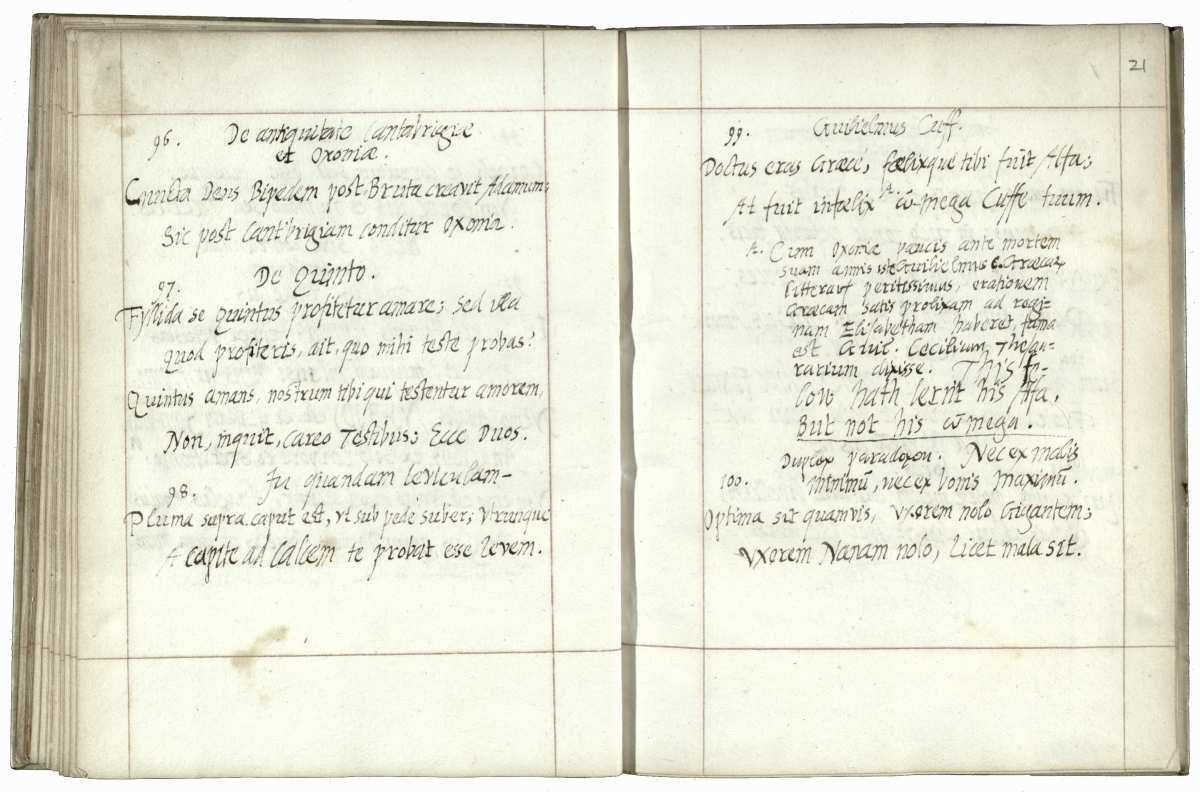 96. De antiquitate Cantabrigiæ
et Oxoniæ.
Cuncta Deus Bipedem post Bruta creavit Adamum;
Sic post Cantibrigiam conditur Oxonia.
97. De Quinto.
Fyllida se Quintus profitetur amare; sed illa
Quod profiteris, ait, quo mihi teste probas?
Quintus amans, nostrum tibi qui testentur amorem,
Non, inquit, careo Testibus; Ecce Duos.
98. In quandam leviculam-
Pluma supra caput est, ut sub pede suber; Utrunque
A capite ad calcem te probat esse levem.
21
99. Guilielmus Cuff.
Doctus eras Græcè, fœlixque tibi fuit Alfa;
At fuit infœlix A. ω-mega Cuffe tuum.
A. Cum Oxoniæ paucis ante mortem
suam annis iste Guilielmus C. Græcar
litterarū peritissimus, orationem
Græcam satis prolixam ad regi-
nam Elisabetham haberet, fama
est Guil. Cecilium, Thesau-
rarium dixisse. This fe-
low hath lernt his Alfa,
But not his ω mega.
Duplex paradoxon. Nec ex malis
100. minimū, nec ex bonis maximū.
Optima sit quamvis, Uxorem nolo Gigantem;
Uxorem Nanam nolo, licet mala sit.